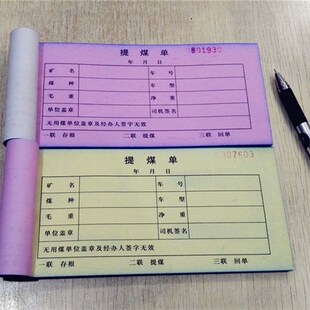 提煤单
801930
年 月 日
矿 名 车 号
煤 种 车 型
毛 重 净 重
单位盖章 司机签名
无用煤单位盖章及经办人签字无效
一联 存根 二联 提煤 三联 回单
提煤单
807603
年 月 日
矿 名 车 号
煤 种 车 型
毛 重 净 重
单位盖章 司机签名
无用煤单位盖章及经办人签字无效
一联 存根 二联 提煤 三联 回单